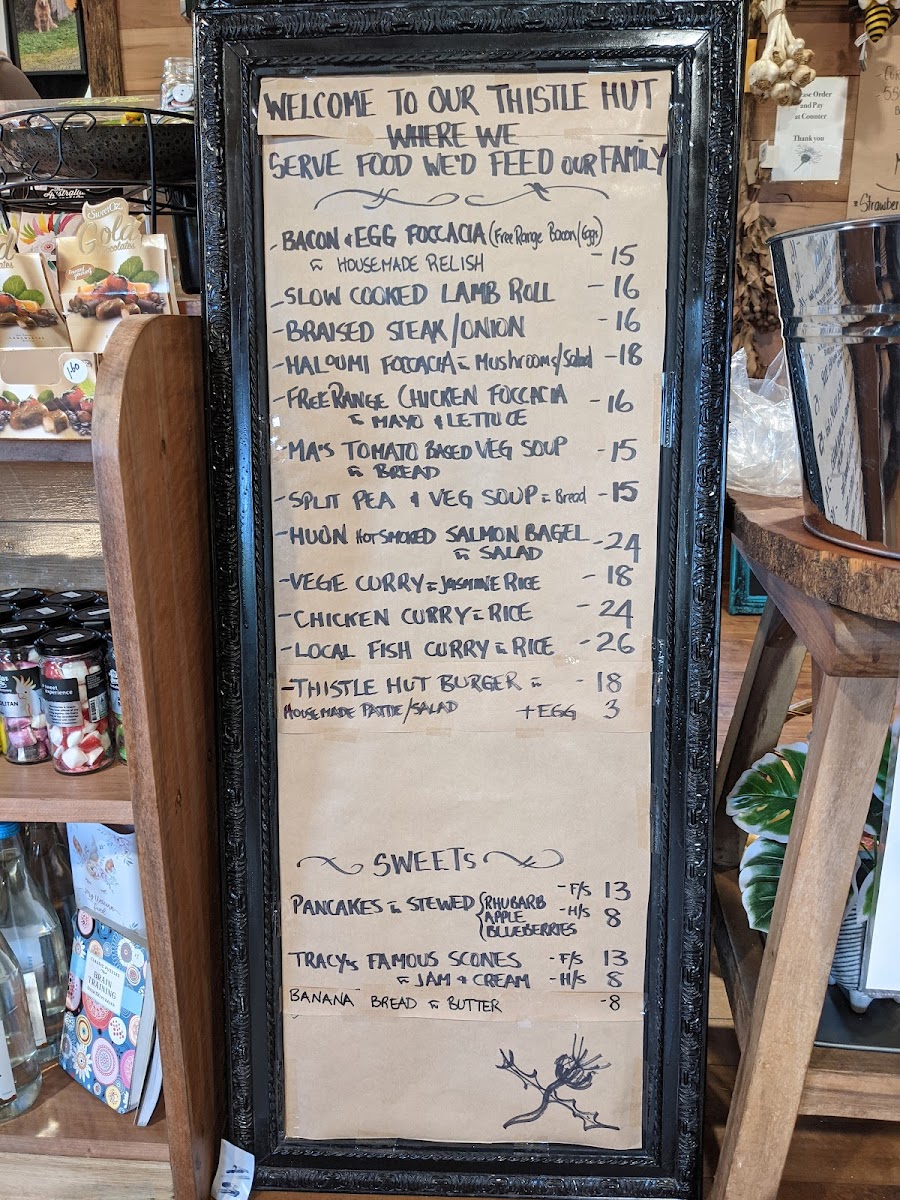 WELCOME TO OUR THISTLE HUT
WHERE WE
SERVE FOOD WE'D FEED OUR FAMILY
- BACON & EGG FOCCACIA (Free Range Bacon/Eggs)
w HOUSEMADE RELISH - 15
- SLOW COOKED LAMB ROLL - 16
- BRAISED STEAK/ONION - 16
- HALOUMI FOCCACIA w Mushrooms/Salad - 18
- FREE RANGE CHICKEN FOCCACIA
w MAYO & LETTUCE - 16
- MA'S TOMATO BASED VEG SOUP - 15
w BREAD
- SPLIT PEA & VEG SOUP w Bread - 15
- HUON HOT SMOKED SALMON BAGEL
w SALAD - 24
- VEGIE CURRY w JASMINE RICE - 18
- CHICKEN CURRY w RICE - 24
- LOCAL FISH CURRY w RICE - 26
- THISTLE HUT BURGER w - 18
HOUSEMADE PATTIE/SALAD + EGG 3
SWEETS
PANCAKES w STEWED { RHUBARB - F/S 13
APPLE - H/S 8
BLUEBERRIES
TRACY'S FAMOUS SCONES - F/S 13
w JAM & CREAM - H/S 8
BANANA BREAD w BUTTER - 8
Order
and Pay
at Counter
Thank you
Australia
Gold
BRAIN
TRAINING